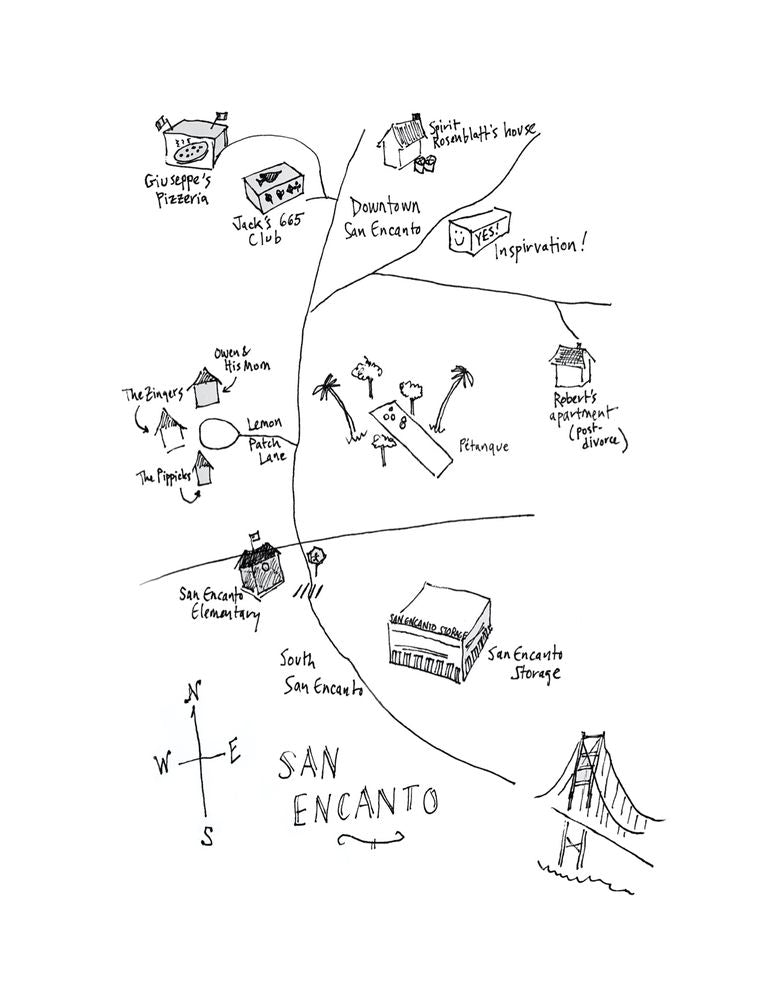 Giuseppe's
Pizzeria
Jack's 665
Club
Spirit
Rosenblatt's house
Downtown
San Encanto
YES!
Inspirvation!
Owen &
His Mom
The Zingers
Lemon
Patch
Lane
The Pippicks
Pétanque
Robert's
apartment
(post-
divorce)
San Encanto
Elementary
SAN ENCANTO STORAGE
San Encanto
Storage
South
San Encanto
N
W
E
S
SAN
ENCANTO